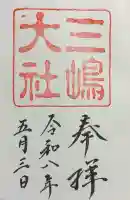 三嶋
大社
奉拝
令和八年
五月三日